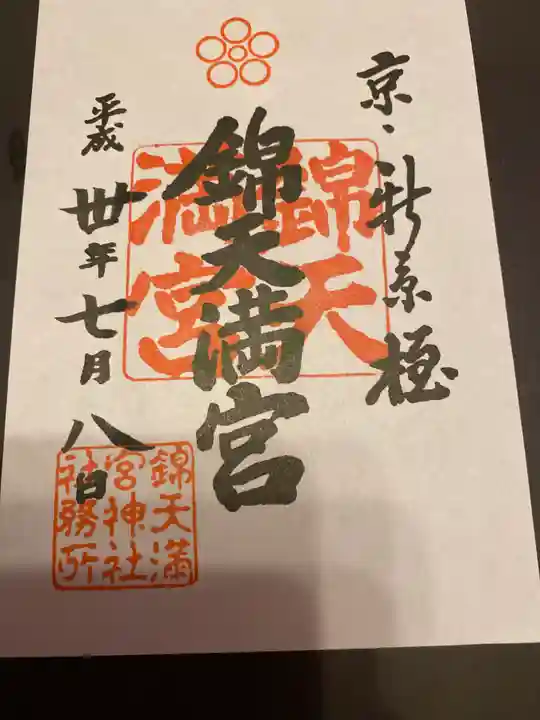 京・新京極
錦天満宮
錦天
満宮
平成
卅年七月八日
錦天満
宮神社
社務所